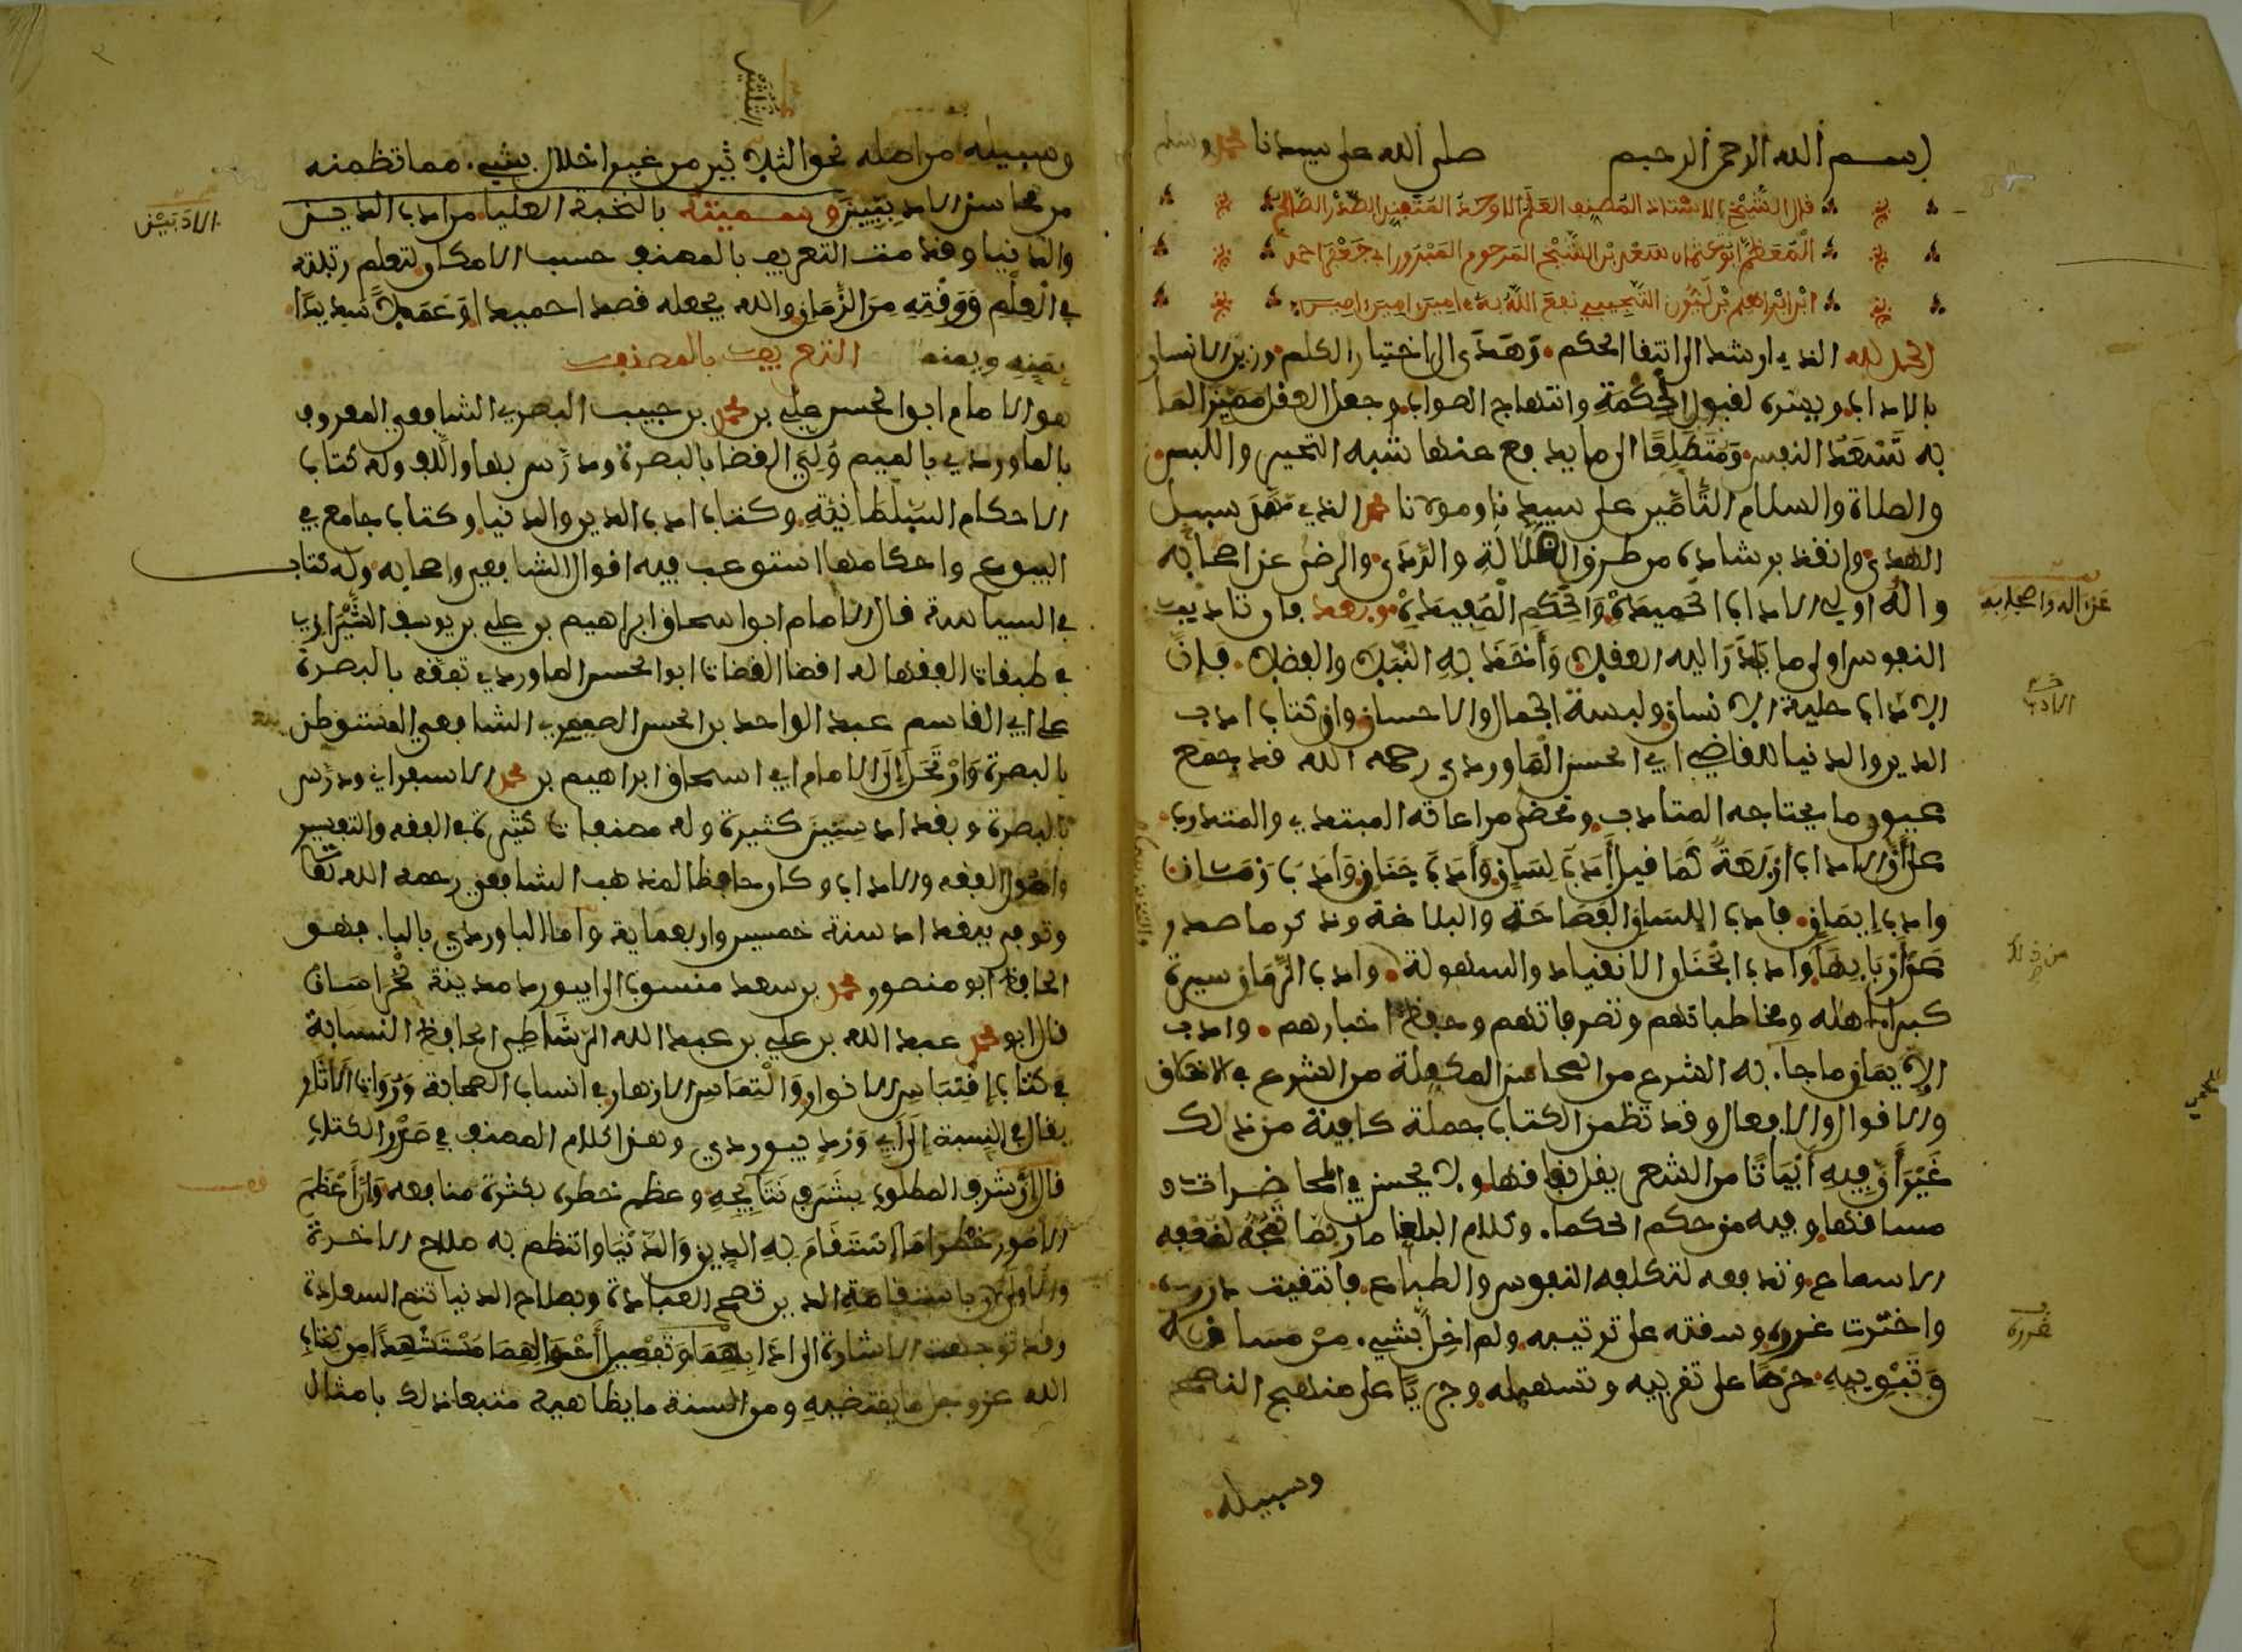 بسم الله الرحمن الرحيم صلى الله على سيدنا محمد وسلم
قال الشيخ الاستاذ المصنف العلم الاوحد المتفنن الصدر الصالح
المعظم ابو عثمان سعد بن الشيخ المرحوم المبرور ابي جعفر احمد
ابن ابراهيم بن ليون التجيبي نفع الله به ءامين امين امين
الحمد لله الذي ارشد الى انتقا الحكم وهدى الى اختيار الكلم وزين الانسان
بالاداب ويسره لقبول الحكمة وانتهاج الصواب وجعل العقل مميزا لما
به تسعد النفس ومتطلعا الى ما يدفع عنها شبه التحير واللبس
والصلاة والسلام التامين على سيدنا ومولانا محمد الذي مهد سبيل
الهدى وانقذ برشاده من طرق الضلالة والردى والرضى عن اصحابه
واله اولي الاداب الحميدة والحكم المفيدة وبعد فان تاديب
النفوس اولى ما بادر اليه العقل وانحفظ به النبل والفضل فان
الاداب حلية الانسان ولبسة الجمال والاحسان وان كتاب ادب
الدين والدنيا للقاضي ابي الحسن الماوردي رحمه الله قد جمع
عيون ما يحتاجه المتادب ومحض مراعاته المبتدي والمتدرب
على ان الاداب اربعة كما قيل ادب لسان وادب جنان وادب زمان
وادب ايمان فادب اللسان الفصاحة والبلاغة وذكر ما صدر
عن اربابها وادب الجنان الانقياد والسهولة وادب الزمان سيرة
كبرا اهله ومخاطباتهم وتصرفاتهم وحفظ اخبارهم وادب
الايمان ما جا به الشرع من المحاسن المكملة من الشرع في الاخلاق
والاقوال والافعال وقد تظمن الكتاب جملة كافية من ذلك
غير ان فيه ابياتا من الشعر يقل نفاقها ولا يحسن في المحاضرات
مساقها وفيه من حكم الحكما وكلام البلغا ما ربما تمجه لضعفه
الاسماع وتدفعه لتكلفه النفوس والطباع فانتقيت درره
واخترت غرره وسقته على ترتيبه ولم اخل بشيء من مساقه
وتبويبه حرصا على تقريبه وتسهيله وجريا على منهج النصح
وسبيله
عن اله واصحابه
الادب
من ذلك
غرره
وسبيله من اصله نحو الثلاثين من غير اخلال بشيء مما تظمنه
من محاسن الادبيين وسميته بالنخبة العليا من ادب الدين
والدنيا وقدمت التعريف بالمصنف حسب الامكان لتعلم رتبته
في العلم ووقته من الزمان والله يجعله قصدا حميدا وعملا سديدا
بمنه ويمنه التعريف بالمصنف
هو الامام ابو الحسن علي بن محمد بن حبيب البصري الشافعي المعروف
بالماوردي بالميم ولي القضا بالبصرة ودرس بها والف وله كتاب
الاحكام السلطانية وكتاب ادب الدين والدنيا وكتاب جامع في
البيوع واحكامها استوعب فيه اقوال الشافعي واصحابه وله كتاب
في السياسة قال الامام ابو اسحاق ابراهيم بن علي بن يوسف الشيرازي
في طبقات الفقها له اقضا القضاة ابو الحسن الماوردي تفقه بالبصرة
على ابي القاسم عبد الواحد بن الحسن الصيمري الشافعي المستوطن
بالبصرة وارتحل الى الامام ابي اسحاق ابراهيم بن محمد الاسفراني ودرس
بالبصرة وبغداد سنين كثيرة وله مصنفات كثيرة في الفقه والتفسير
واصول الفقه والاداب وكان حافظا لمذهب الشافعي رحمه الله تعا
وتوفي ببغداد سنة خمسين واربعماية واما الباوردي بالبا فهو
الحافظ ابو منصور محمد بن سعد منسوب الى ابيورد مدينة بخراسان
قال ابو محمد عبد الله بن علي بن عبد الله الرشاطي الحافظ النسابة
في كتاب اقتباس الانوار والتماس الازهار في انساب الصحابة ورواة الاثار
يقال في النسبة الى ابي ورد بيوردي وهذا كلام المصنف في صدر الكتاب
قال ان شرف المطلوب بشرف نتايجه وعظم خطره بكثرة منافعه وان اعظم
الامور خطرا ما استقام به الدين والدنيا وانتظم به صلاح الاخرة
والاولى لان باستقامة الدين تصح العبادة وبصلاح الدنيا تتم السعادة
وقد توجهت الاشارة الى ادابهما وتفصيل احوالهما مستشهدا من كتاب
الله عز وجل ما يقتضيه ومن السنة ما يظاهيه متبعا ذلك بامثال
الادبيين
الثلثين